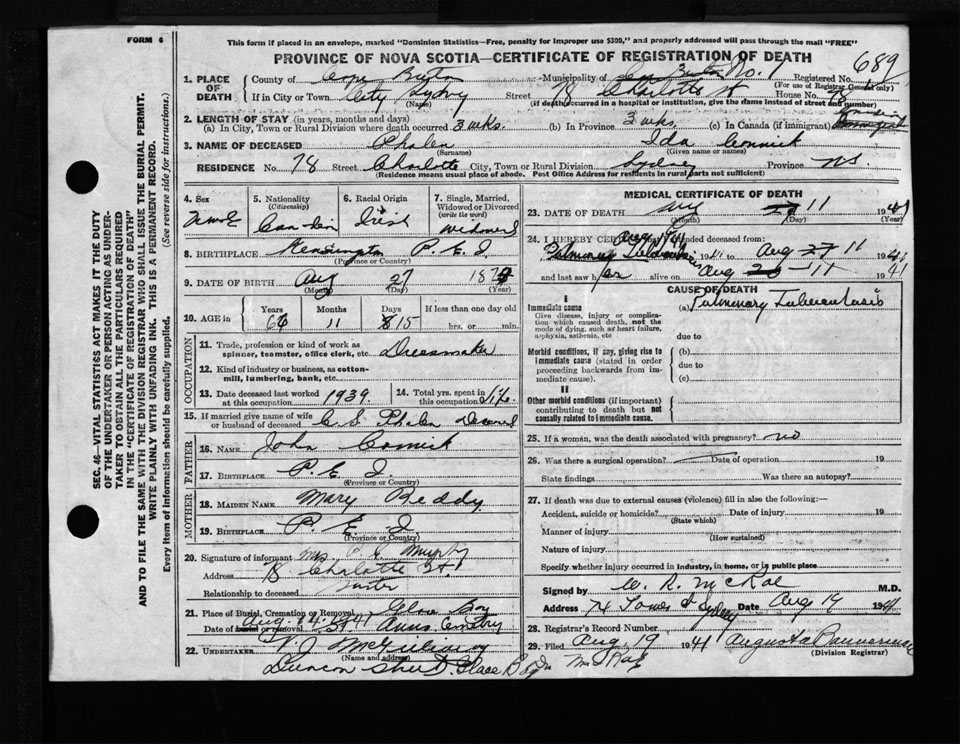 FORM 6
This form if placed in an envelope, marked "Dominion Statistics—Free, penalty for improper use $300," and properly addressed will pass through the mail "FREE"
PROVINCE OF NOVA SCOTIA—CERTIFICATE OF REGISTRATION OF DEATH
689
1. PLACE OF DEATH
County of Cape Breton Municipality of Breton No. 1 Registered No.
(For use of Registrar General only)
If in City or Town City Sydney Street 78 Charlotte St House No. 78
(Name) (If death occurred in a hospital or institution, give the name instead of street and number)
2. LENGTH OF STAY (in years, months and days)
(a) In City, Town or Rural Division where death occurred 3 wks. (b) In Province 3 wks. (c) In Canada (if immigrant)
3. NAME OF DECEASED Phalen Ida Cormick
(Surname) (Given name or names)
RESIDENCE No. 78 Street Charlotte City, Town or Rural Division Sydney Province NS
(Residence means usual place of abode. Post Office Address for residents in rural parts not sufficient)
4. Sex
Female
5. Nationality
(Citizenship)
Canadian
6. Racial Origin
Irish
7. Single, Married, Widowed or Divorced
(write the word)
Widowed
8. BIRTHPLACE Kensington P. E. I.
(Province or Country)
9. DATE OF BIRTH Aug 27 187
(Month) (Day) (Year)
10. AGE in Years Months Days If less than one day old
11 15 hrs. or min.
OCCUPATION
11. Trade, profession or kind of work as spinner, teamster, office clerk, etc. Dressmaker
12. Kind of industry or business, as cotton-mill, lumbering, bank, etc.
13. Date deceased last worked at this occupation 1939 14. Total yrs. spent in this occupation
15. If married give name of wife or husband of deceased C S Phalen
FATHER
16. NAME John Cormick
17. BIRTHPLACE P. E. I
(Province or Country)
MOTHER
18. MAIDEN NAME Mary Reddy
19. BIRTHPLACE P. E. I
(Province or Country)
20. Signature of informant Mrs Murphy
Address 78 Charlotte St.
Relationship to deceased
21. Place of Burial, Cremation or Removal Glace Bay
Date of burial or removal Aug. 14 1941 St Anns Cemetery
22. UNDERTAKER
(Name and address)
Glace Bay
MEDICAL CERTIFICATE OF DEATH
23. DATE OF DEATH Aug 11 1941
(Month) (Day) (Year)
24. I HEREBY CERTIFY attended deceased from:
to Aug 11 1941
and last saw her alive on Aug 11 1941
CAUSE OF DEATH
I
Immediate cause
Give disease, injury or complication which caused death, not the mode of dying, such as heart failure, asphyxia, asthenia, etc
(a) Pulmonary Tuberculosis
due to
Morbid conditions, if any, giving rise to immediate cause (stated in order proceeding backwards from immediate cause).
(b)
due to
(c)
II
Other morbid conditions (if important) contributing to death but not causally related to immediate cause.
25. If a woman, was the death associated with pregnancy? no
26. Was there a surgical operation? Date of operation 19
State findings Was there an autopsy?
27. If death was due to external causes (violence) fill in also the following:—
Accident, suicide or homicide? Date of injury 19
(State which)
Manner of injury
(How sustained)
Nature of injury
Specify whether injury occurred in industry, in home, or in public place
Signed by W. R. McRae M.D.
Address Sydney Date Aug 19 1941
28. Registrar's Record Number
29. Filed Aug 19 1941 Augusta Bannerman
(Division Registrar)
SEC. 46—VITAL STATISTICS ACT MAKES IT THE DUTY
OF THE UNDERTAKER OR PERSON ACTING AS UNDERTAKER TO OBTAIN ALL THE PARTICULARS REQUIRED
IN THE "CERTIFICATE OF REGISTRATION OF DEATH"
AND TO FILE THE SAME WITH THE DIVISION REGISTRAR WHO SHALL ISSUE THE BURIAL PERMIT.
WRITE PLAINLY WITH UNFADING INK. THIS IS A PERMANENT RECORD.
Every item of information should be carefully supplied. (See reverse side for instructions.)